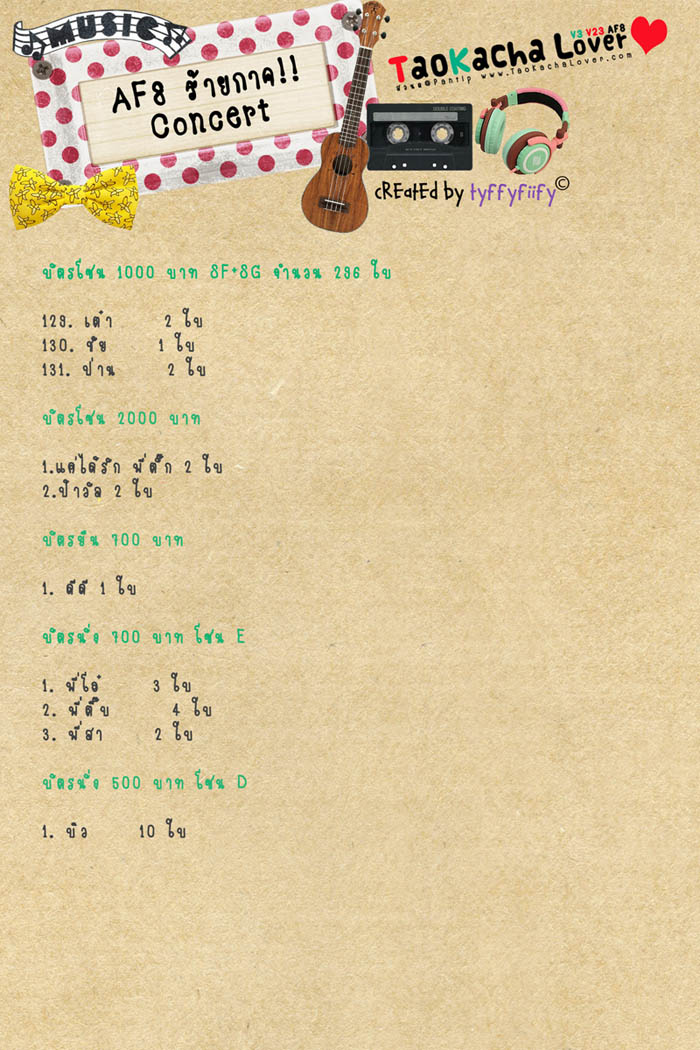 MUSIC
AF8 ร้ายกาจ!!
Concert
TaoKacha Lover
V3 V23 AF8
ห้วย@Pantip www.TaoKachaLover.com
DOUBLE COATING
cREatEd by tyffyfiify©
บัตรโซน 1000 บาท 8F+8G จำนวน 296 ใบ
129. เต๋า 2 ใบ
130. ชัย 1 ใบ
131. ป่าน 2 ใบ
บัตรโซน 2000 บาท
1.แค่ได้รัก พี่ติ๊ก 2 ใบ
2.ป้าวัล 2 ใบ
บัตรยืน 700 บาท
1. ดีดี 1 ใบ
บัตรนั่ง 700 บาท โซน E
1. พี่โอ๋ 3 ใบ
2. พี่ตี๊บ 4 ใบ
3. พี่สา 2 ใบ
บัตรนั่ง 500 บาท โซน D
1. บิว 10 ใบ